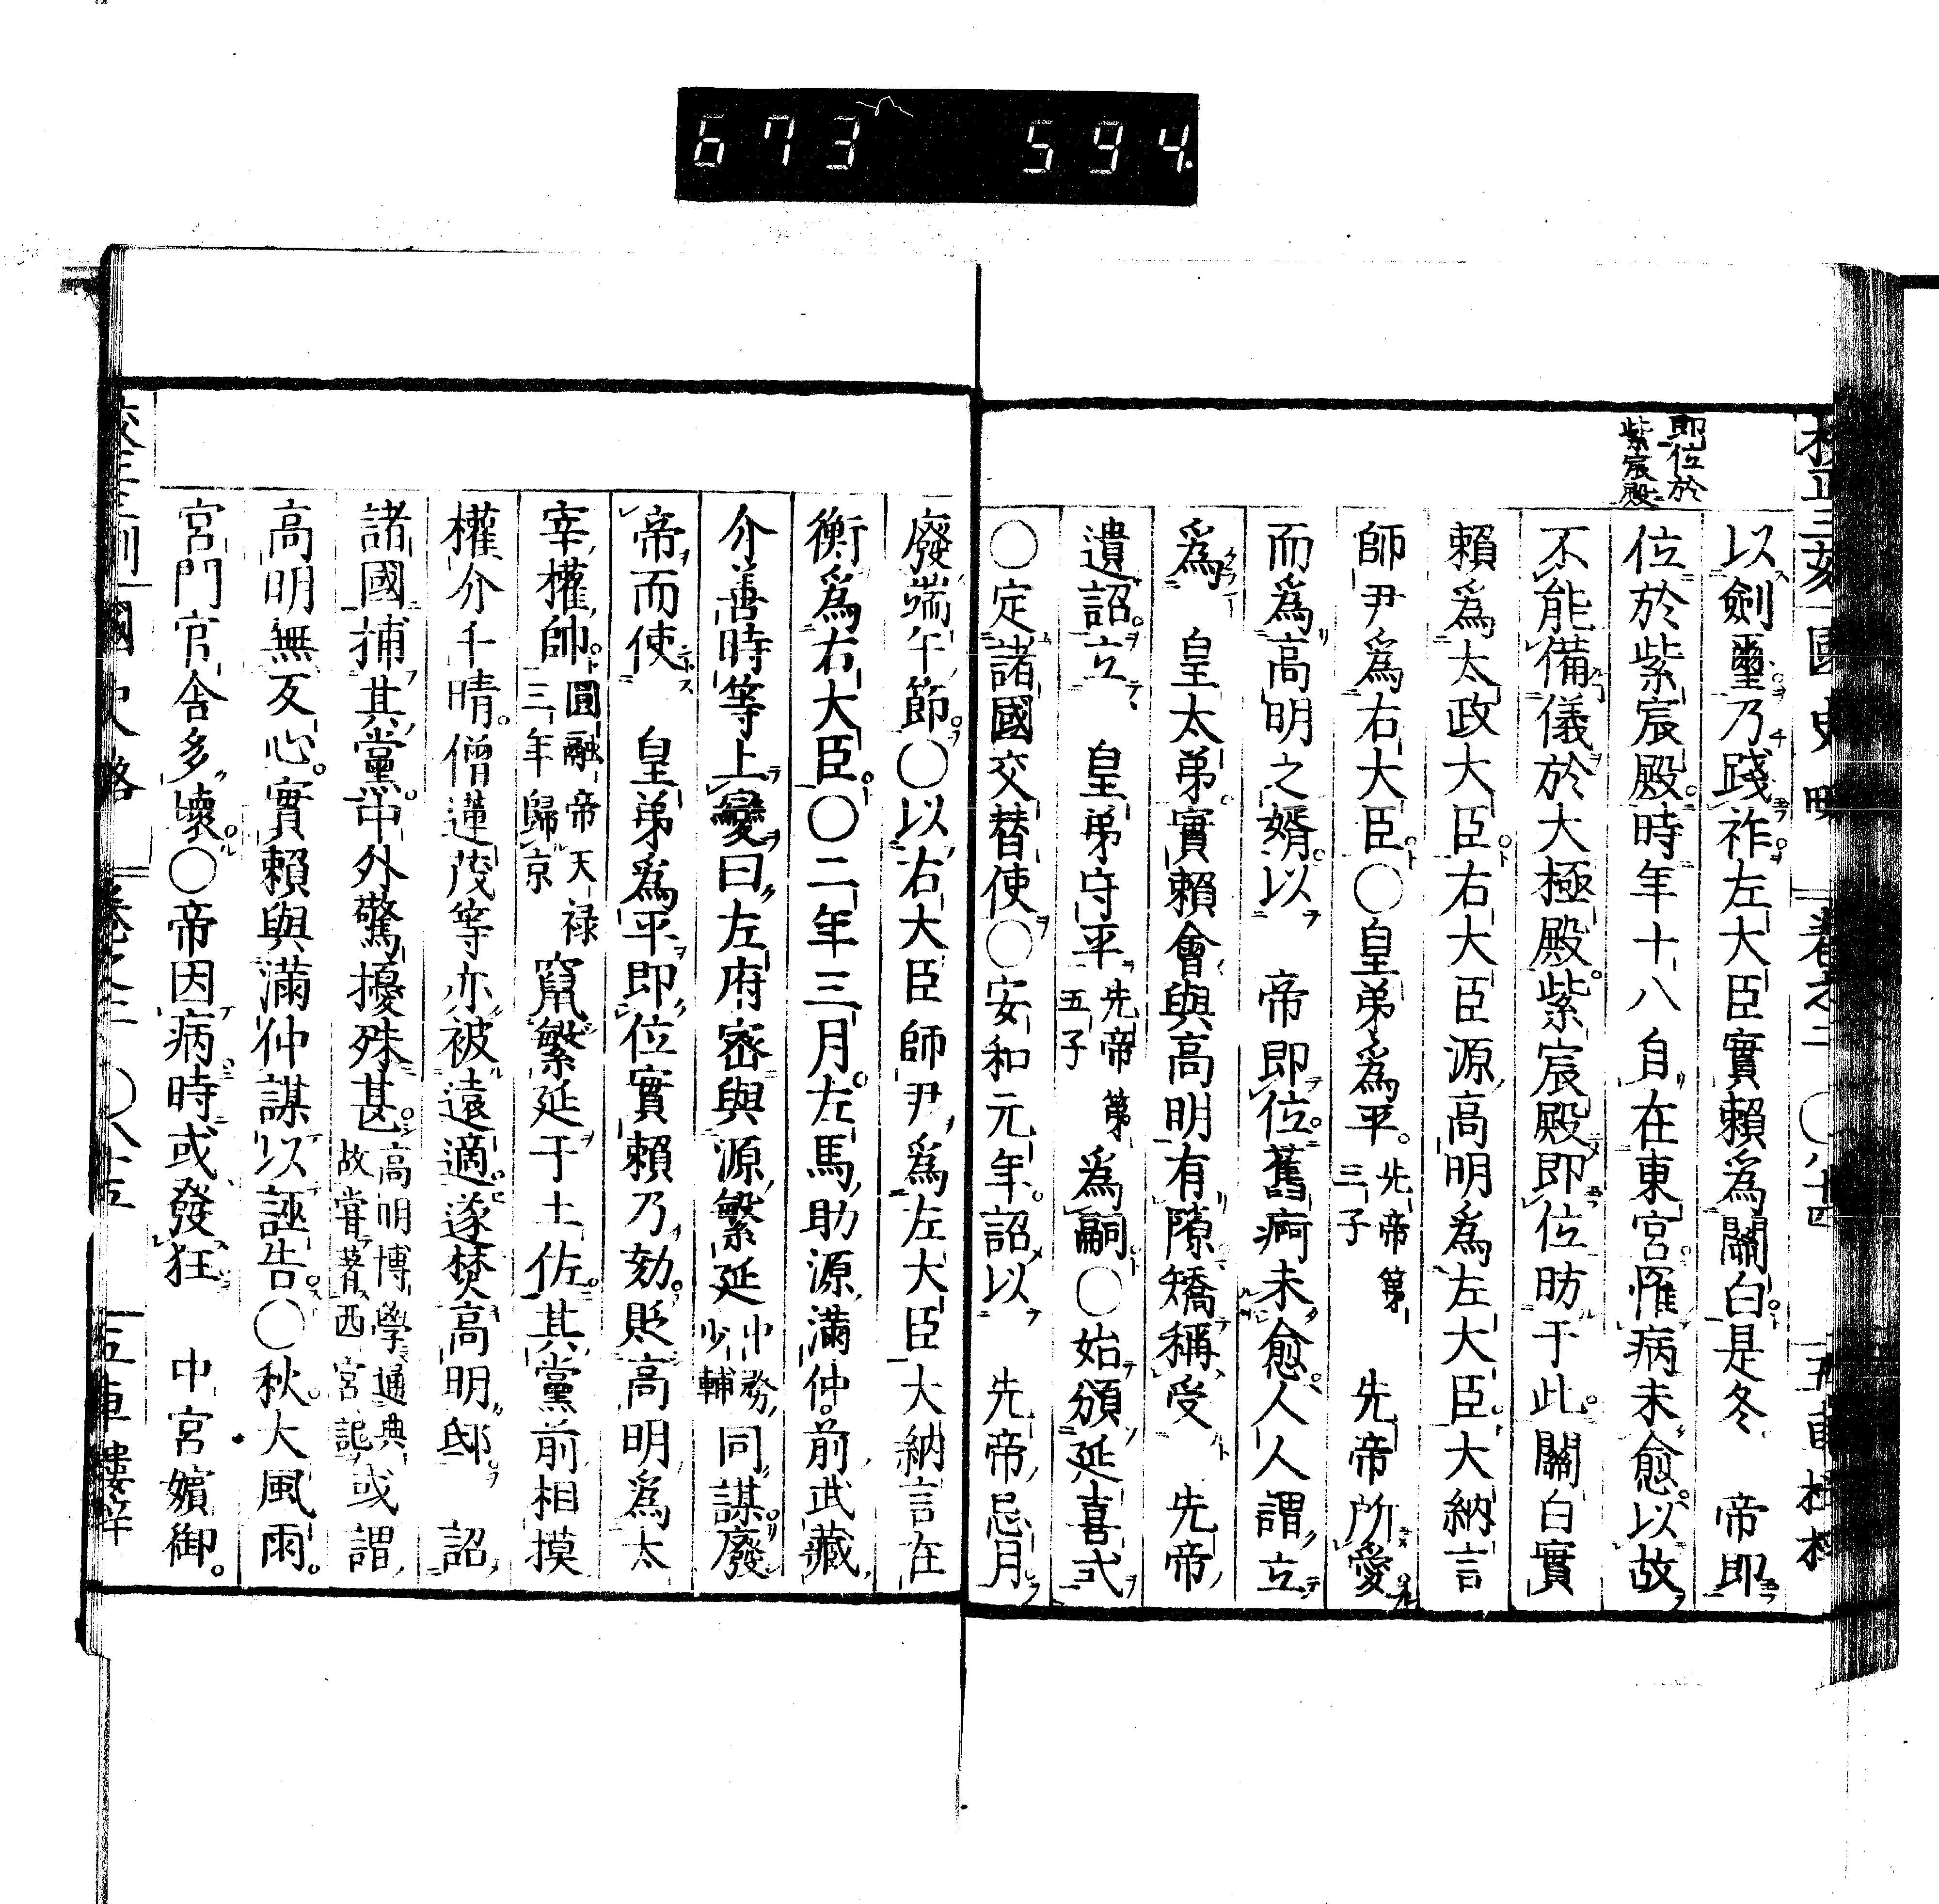 673 594
校正三刻 國史略 卷之二 ○八十四 五車樓梓
即位於
紫宸殿
以劍璽乃踐祚左大臣實賴爲關白是冬 帝即
位於紫宸殿時年十八自在東宮罹病未愈以故
不能備儀於大極殿紫宸殿即位昉于此關白實
賴爲太政大臣右大臣源高明爲左大臣大納言
師尹爲右大臣○皇弟爲平先帝第三子 先帝所愛
而爲高明之婿以 帝即位舊痾未愈人人謂立
爲 皇太弟實賴會與高明有隙矯稱受 先帝
遺詔立 皇弟守平先帝第五子爲嗣○始頒延喜式
○定諸國交替使○安和元年詔以 先帝忌月
廢端午節○以右大臣師尹爲左大臣大納言在
衡爲右大臣○二年三月左馬助源滿仲前武藏
介善時等上變曰左府密與源繁延中務少輔同謀廢
帝而使 皇弟爲平即位實賴乃劾貶高明爲太
宰權帥圓融帝天祿三年歸京竄繁延于土佐其黨前相摸
權介千晴僧蓮茂等亦被遠適遂焚高明邸 詔
諸國捕其黨中外驚擾殊甚高明博學通典故嘗著西宮記或謂
高明無反心實賴與滿仲謀以誣告○秋大風雨
宮門官舍多壞○帝因病時或發狂 中宮嬪御
校正三刻 國史略 卷之二 ○八十五 五車樓梓